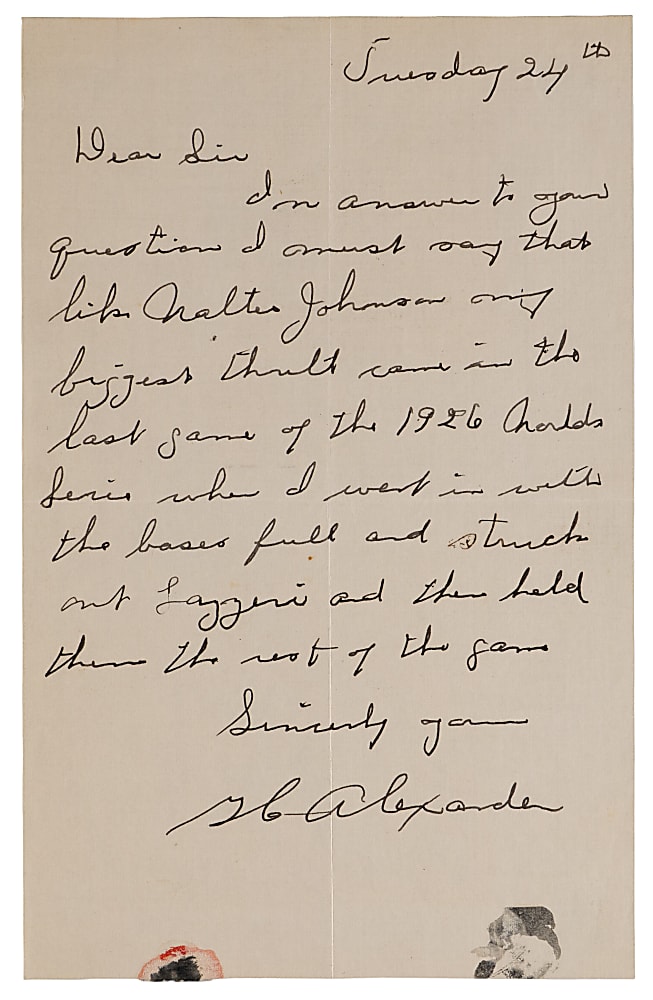 Tuesday 24th
Dear Sir
In answer to your
question I must say that
like Walter Johnson my
biggest thrill came in the
last game of the 1926 Worlds
Series when I went in with
the bases full and struck
out Lazzeri and then held
them the rest of the game
Sincerly yours
G C Alexander